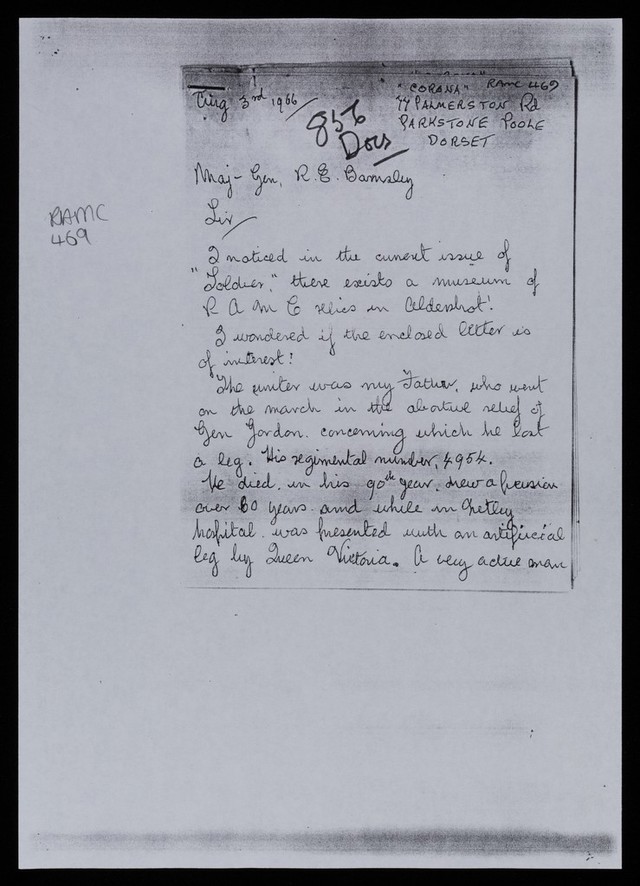 "CORANA" RAMC 469
Aug 3rd 1966
77 PALMERSTON Rd
PARKSTONE POOLE
DORSET
856
Docs
Maj-Gen, R.E. Barnsley
Sir
RAMC
469
I noticed in the current issue of
"Soldier," there exists a museum of
R A M C relics in Aldershot!
I wondered if the enclosed letter is
of interest!
The writer was my Father, who went
on the march in the abortive relief of
Gen Gordon. concerning which he lost
a leg. His regimental number, 4954.
He died, in his 90th year, drew a pension
over 60 years. and while in Netley
hospital. was presented with an artificial
leg by Queen Victoria. A very active man